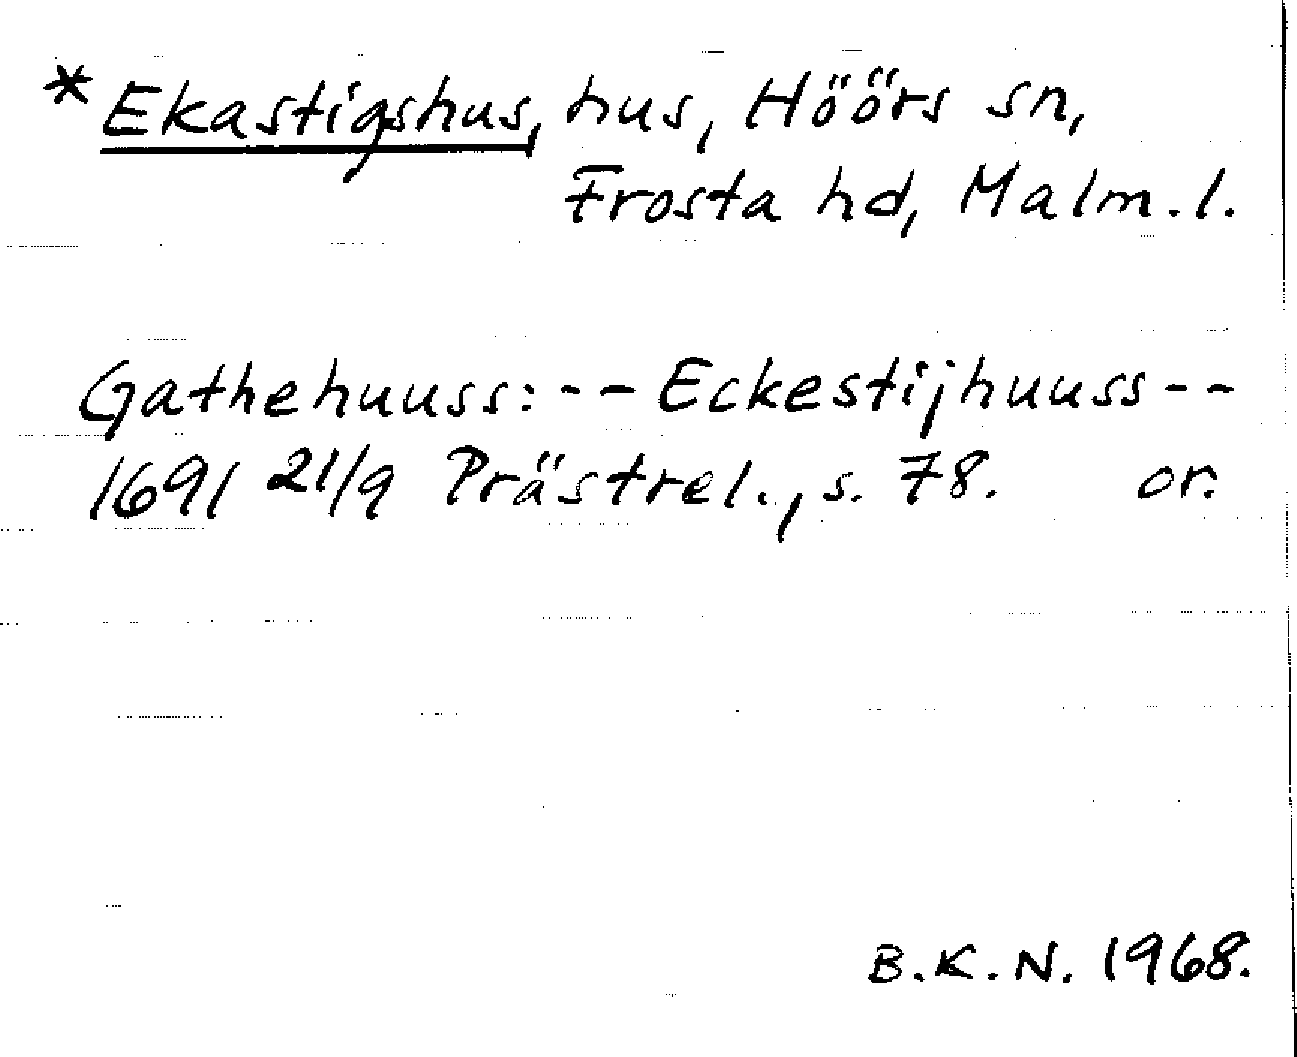 *Ekastigshus, hus, Höörs sn,
Frosta hd, Malm.l.
Gathehuuss:--Eckestijhuuss--
1691 21/9 Prästrel., s. 78. or.
B.K.N. 1968.